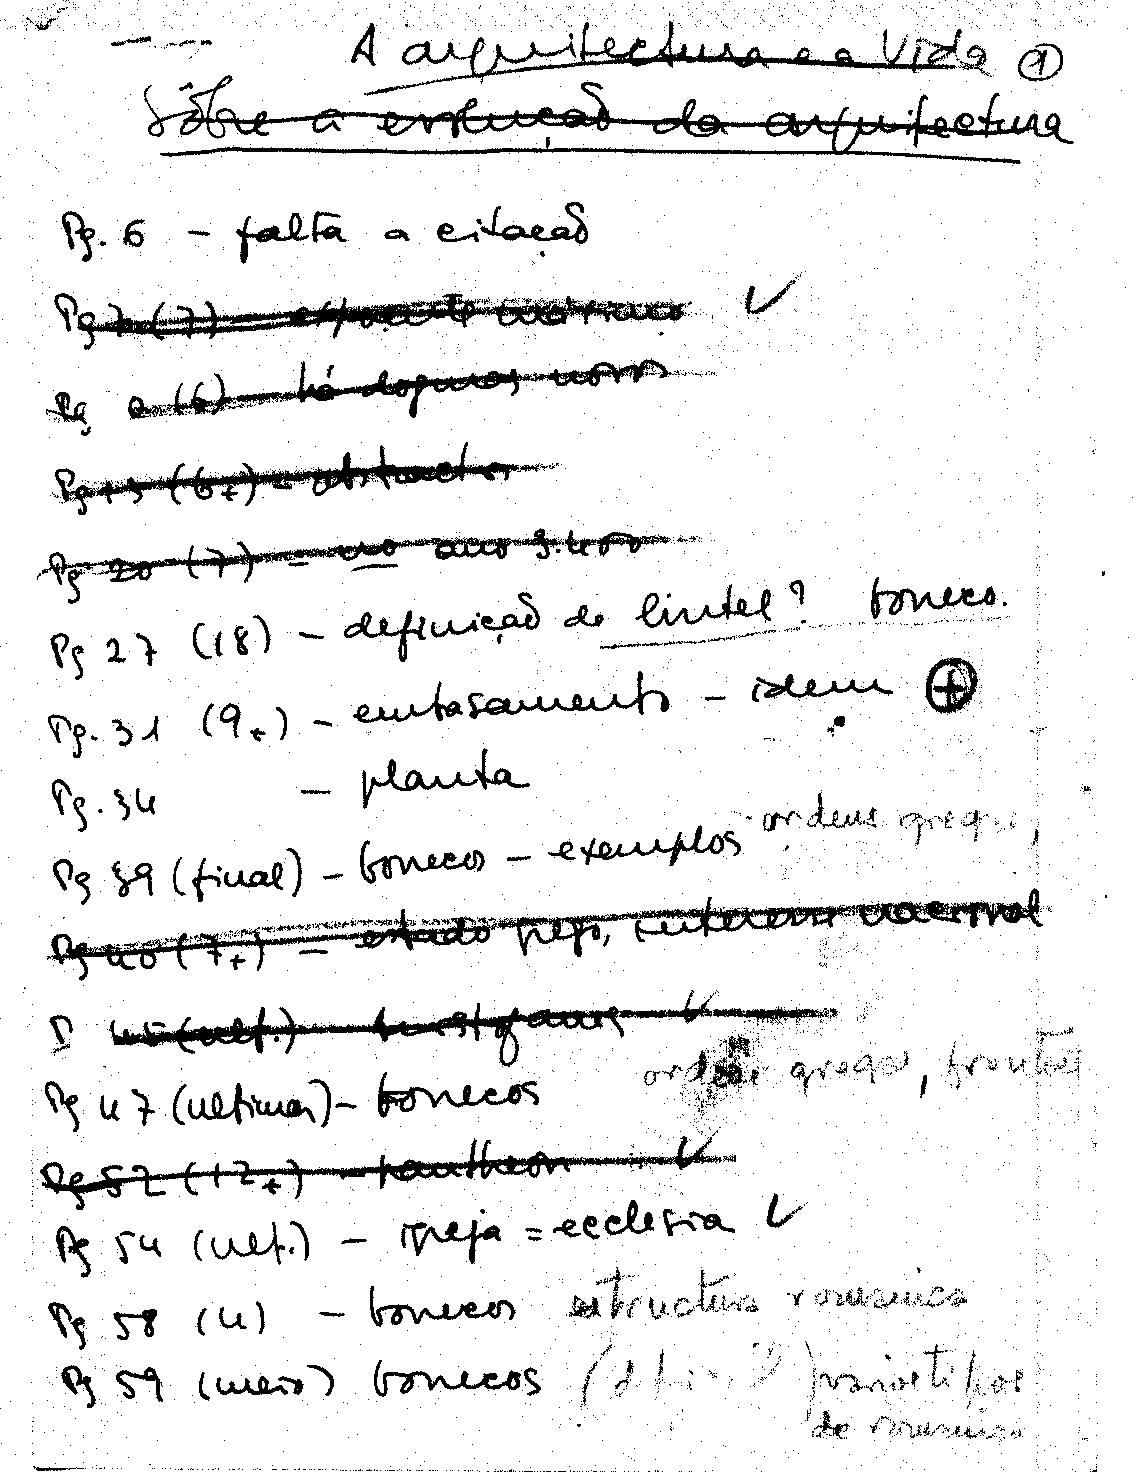 A arquitectura e a Vida 1
Sôbre a evolução da arquitectura
Pg. 6 - falta a citação
Pg (7) -
Pg (6) - há dogmas novos
Pg 13 (6+) - abstracto
Pg 20 (7) - no ano
Pg 27 (18) - definição de lintel? boneco.
Pg. 31 (9+) - embasamento - idem +
Pg. 34 - planta
Pg 39 (final) - bonecos - exemplos ordens gregas,
Pg 40 (7+) - estado interesse nacional
P 45 (ult.) -
Pg 47 (ultimas) - bonecos ordens gregas, frontão
Pg 52 (12+) - pantheon
Pg 54 (ult.) - igreja = ecclesia
Pg 58 (4) - bonecos estructura romanica
Pg 59 (meio) bonecos
de romanico